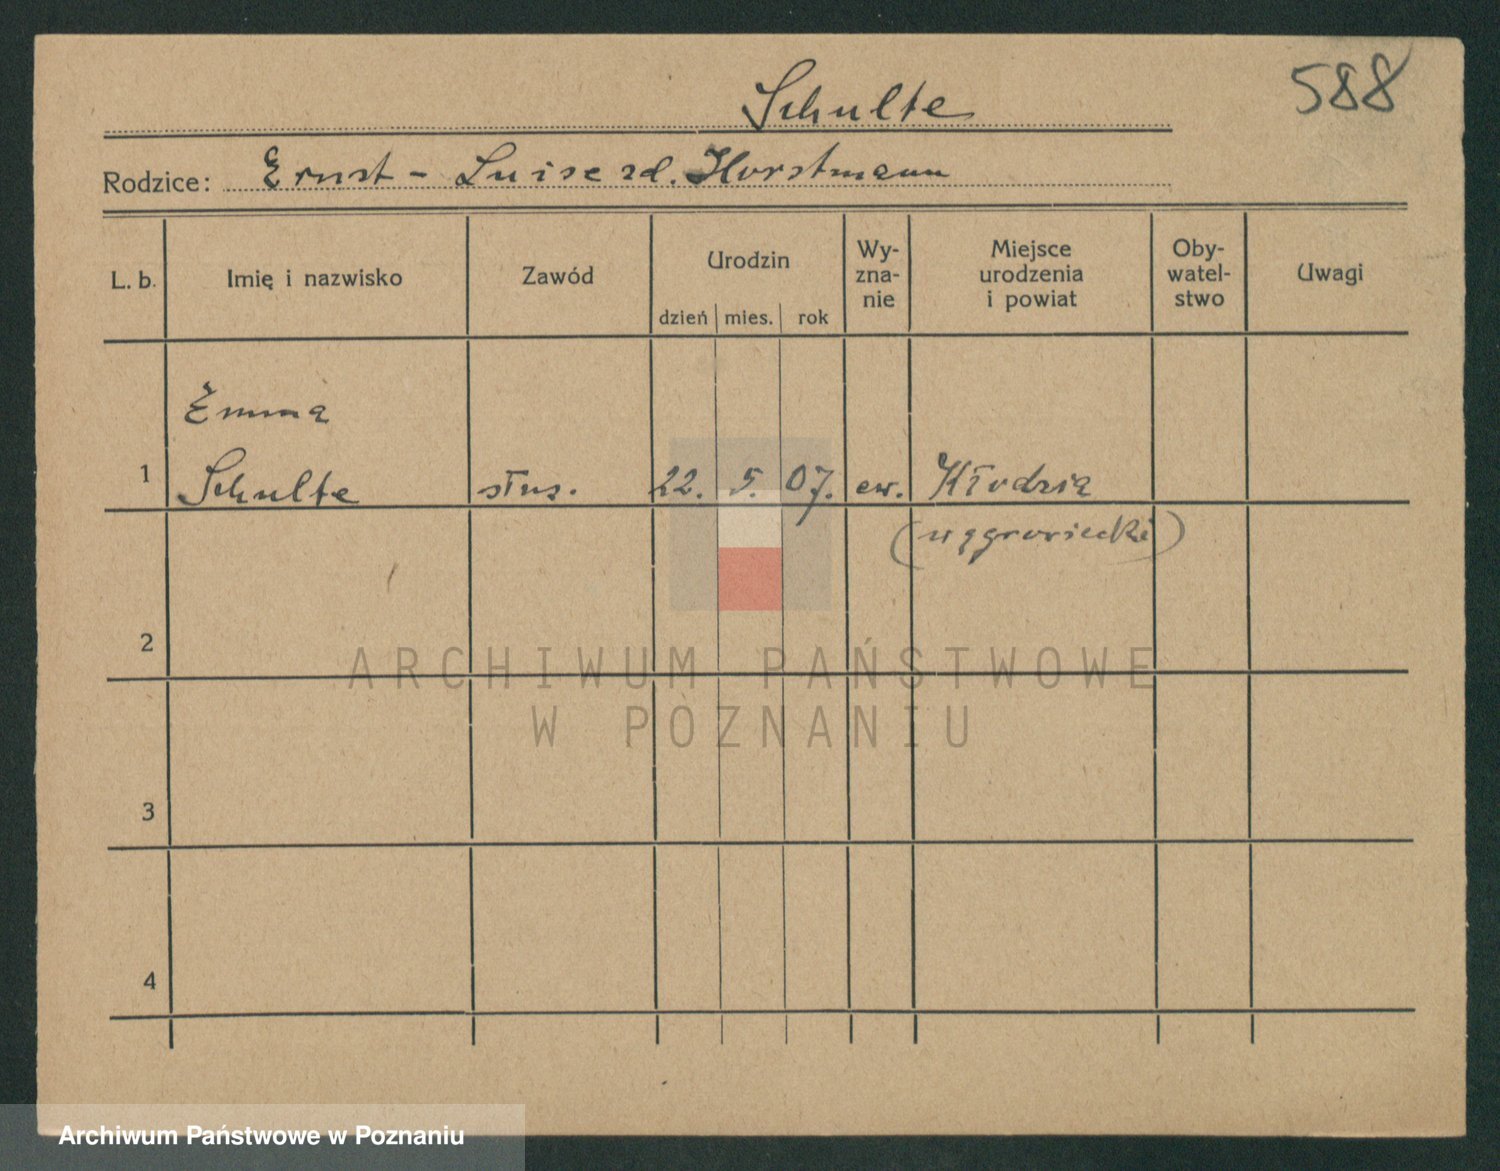 588
Schulte
Rodzice: Ernst - Luise zd. Horstmann
L. b. Imię i nazwisko Zawód Urodzin dzień mies. rok Wy-zna-nie Miejsce urodzenia i powiat Oby-watel-stwo Uwagi
Emma
1 Schulte służ. 22. 5. 07. ew. Kłodzia
(wągrowiecki)
2
ARCHIWUM PAŃSTWOWE
W POZNANIU
3
4
Archiwum Państwowe w Poznaniu